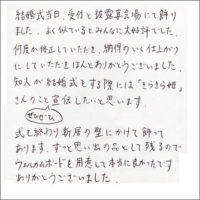 結婚式当日、受付と披露宴会場にて飾り
ました。よく似ているとみんなに大好評でした。
何度か修正していただき、納得のいく仕上がり
にしていただきほんとありがとうございました。
知人が結婚式をする際には“きらきら姫”
さんのこと宣伝したいと思います。
ぜひぜひ
式を終わり新居の壁にかけて飾って
おります。ずっと思い出の品として残るので
ウェルカムボードを用意して本当に良かったです。
ありがとうございました。